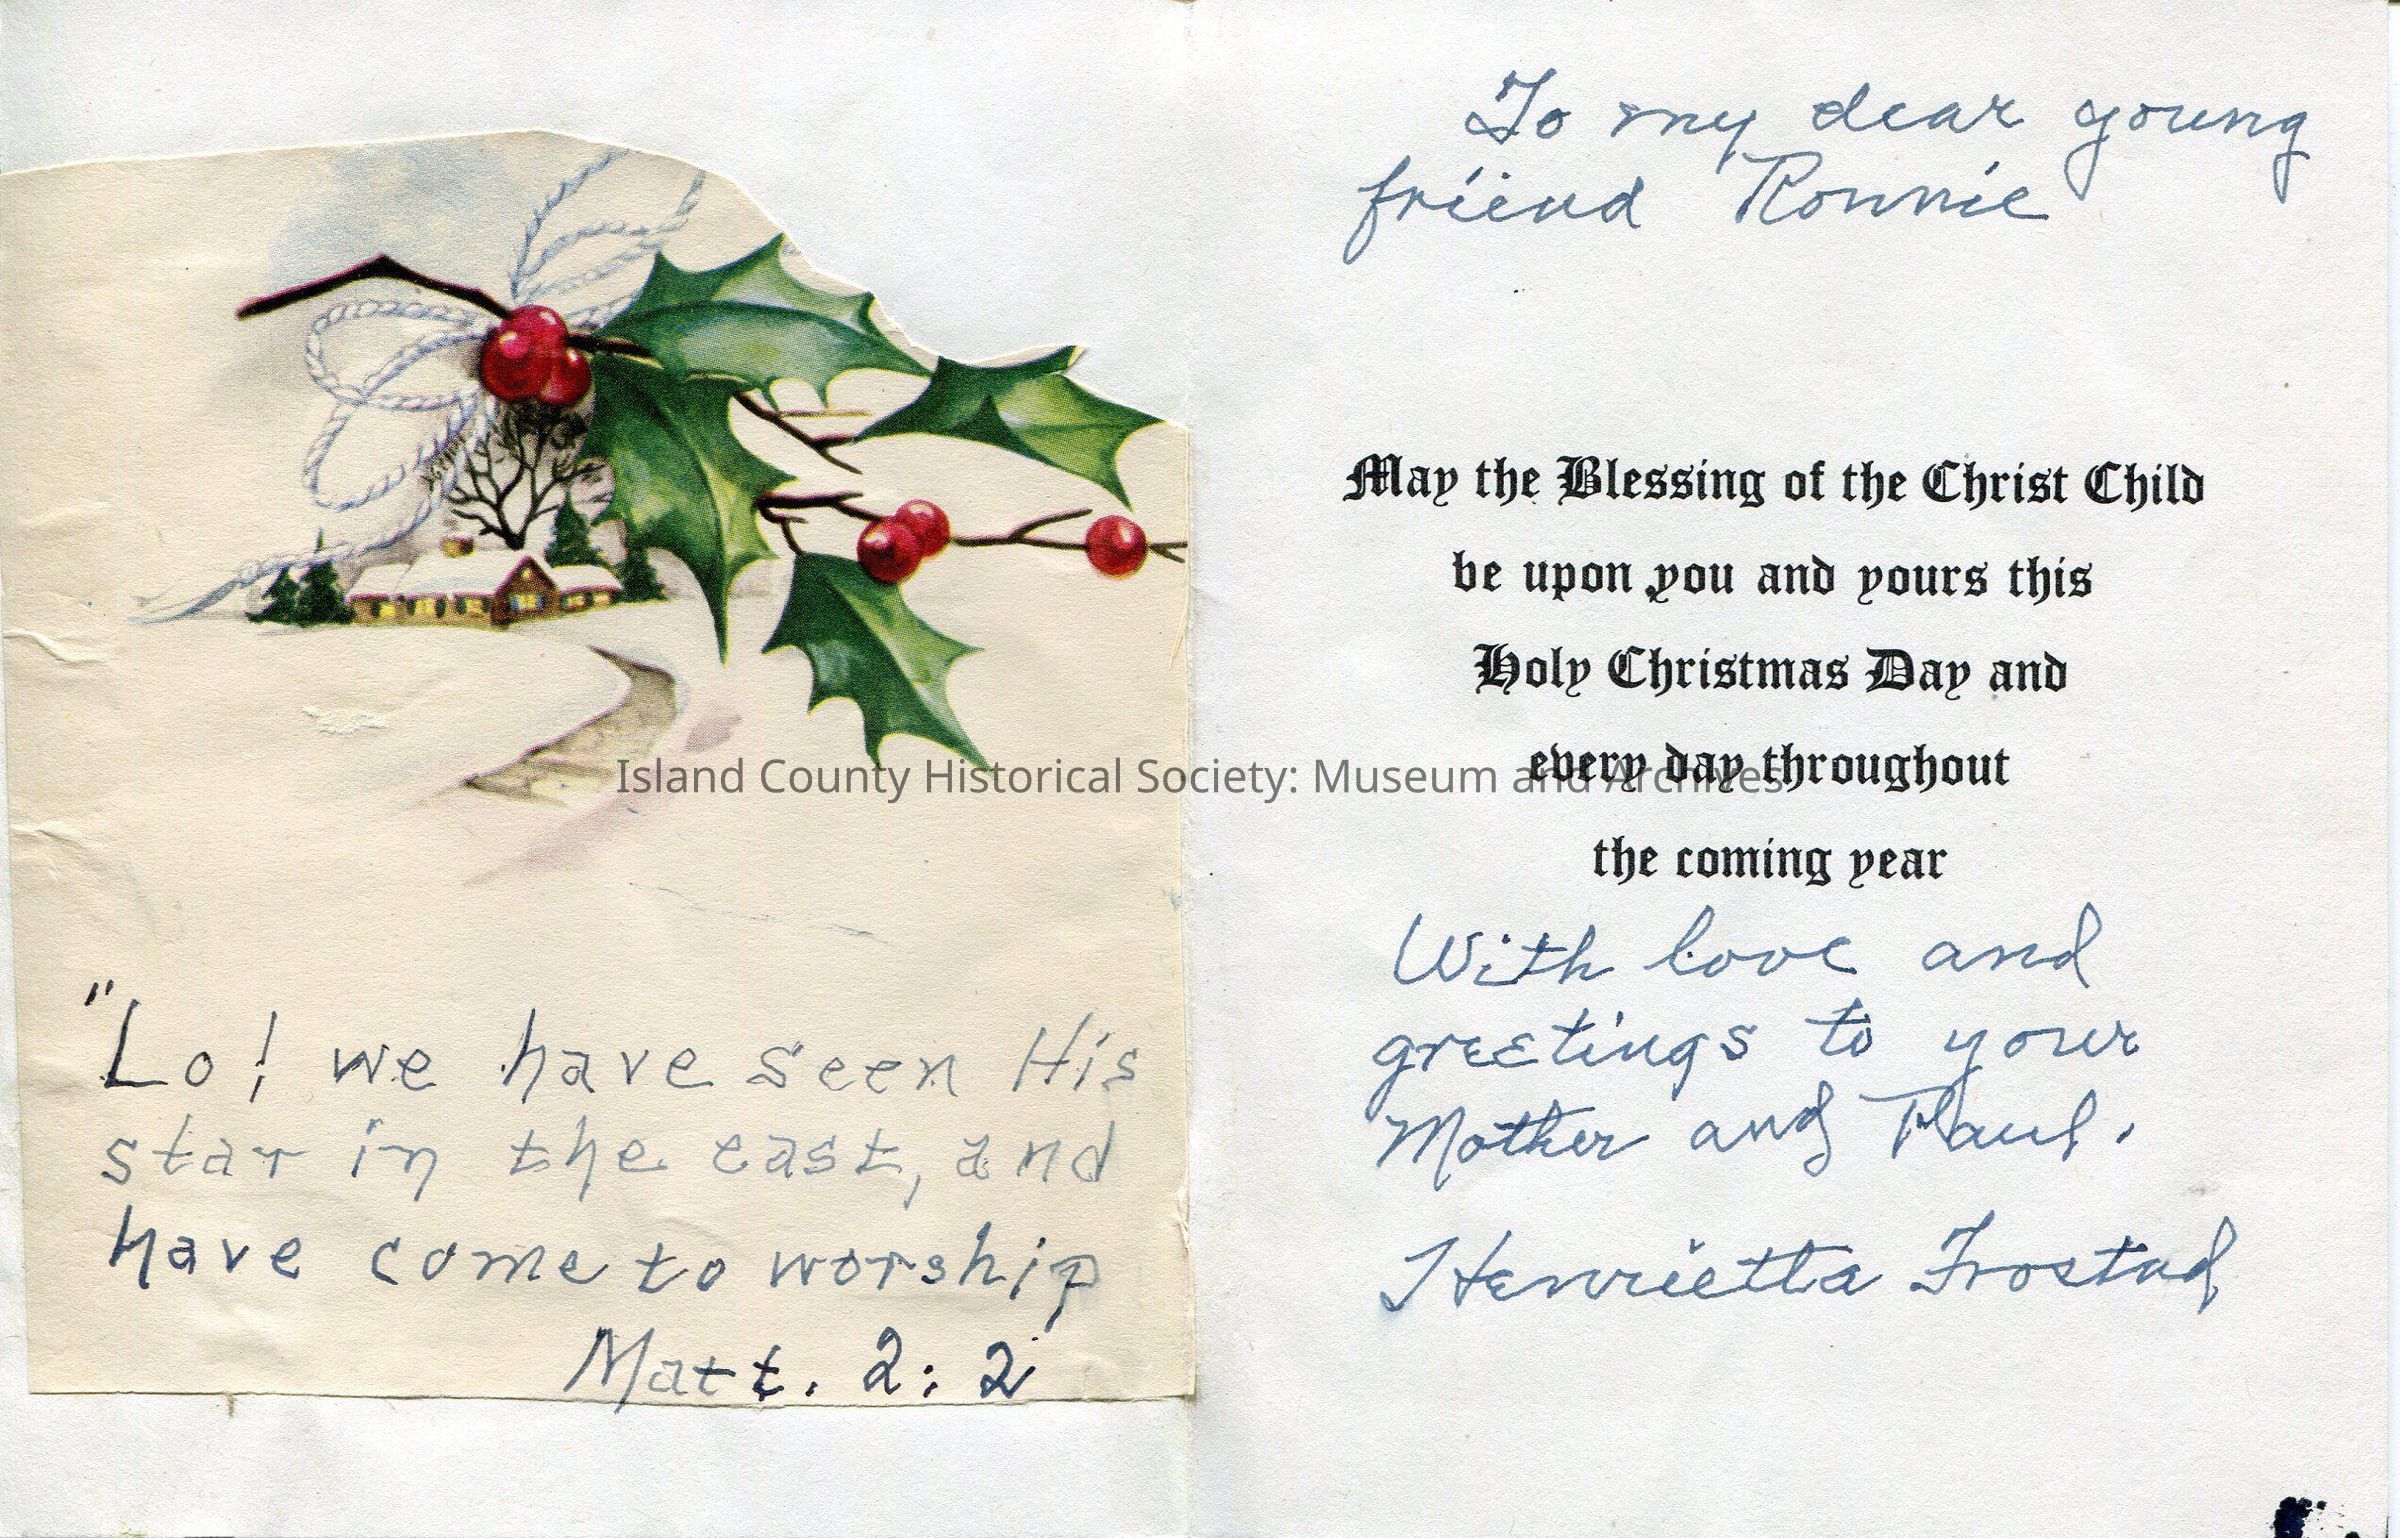 "Lo! we have seen His
star in the east, and
have come to worship
Matt. 2:2
To my dear young
friend Ronnie
May the Blessing of the Christ Child
be upon you and yours this
Holy Christmas Day and
every day throughout
the coming year
With love and
greetings to your
Mother and Paul.
Henrietta Frostad
Island County Historical Society: Museum and Archives